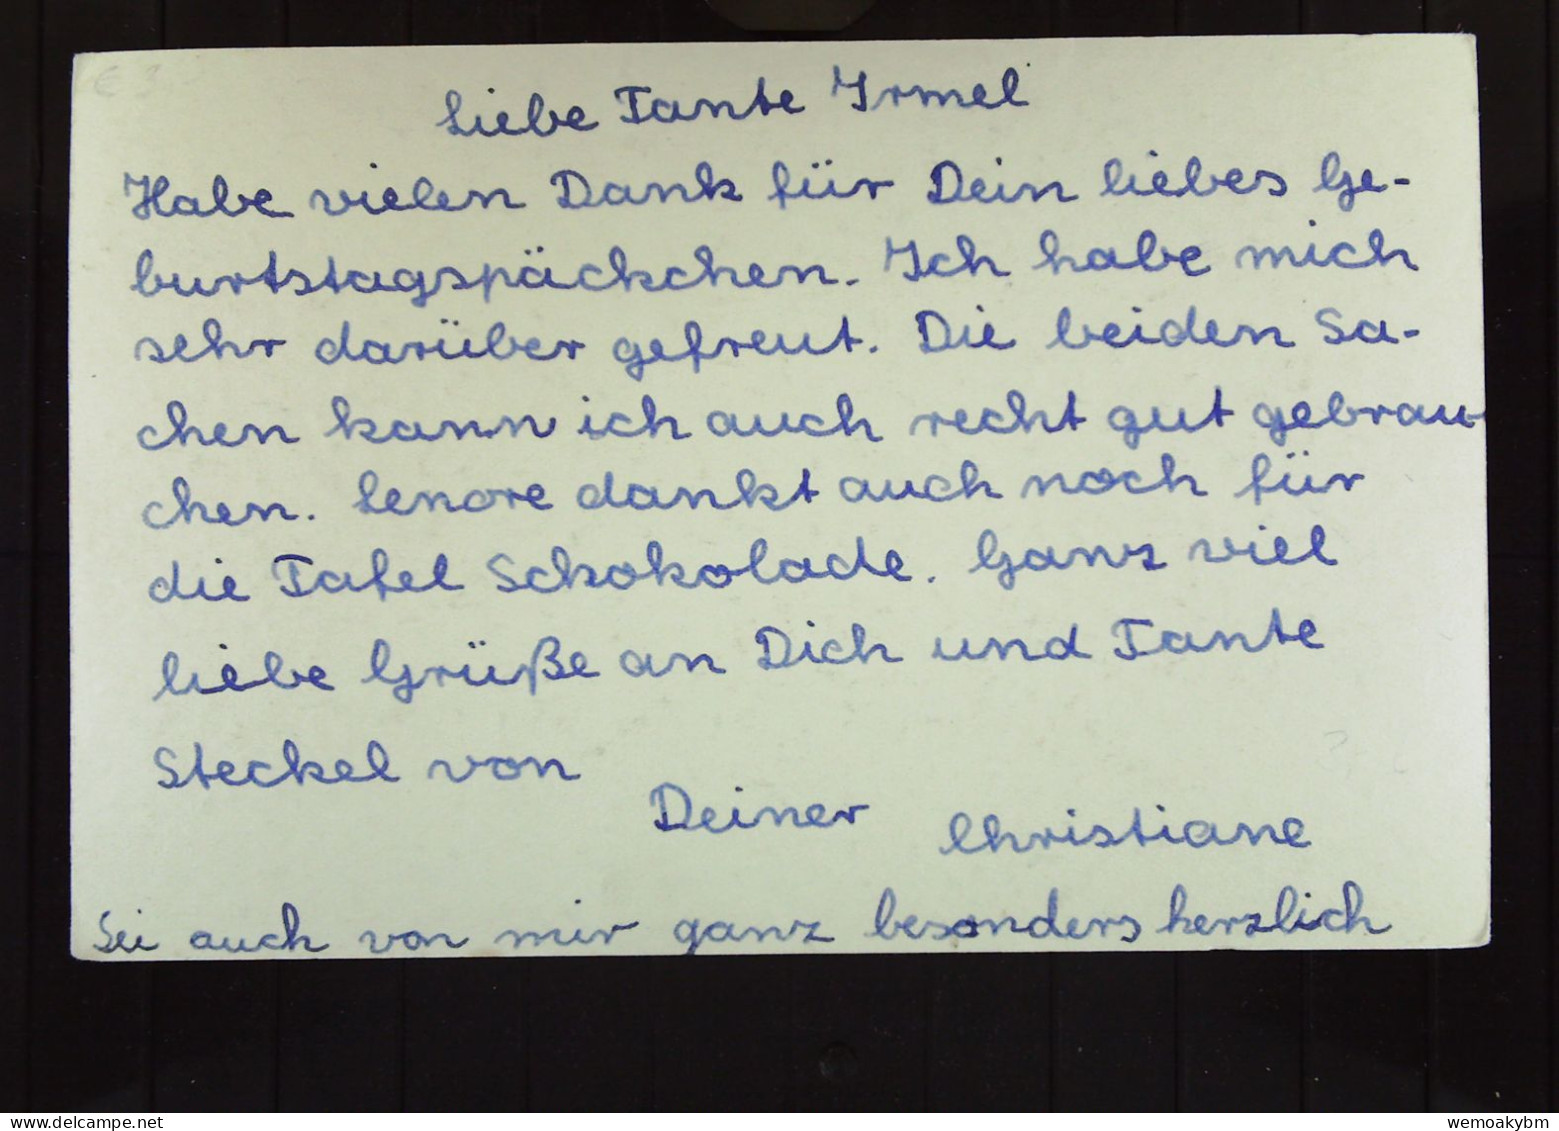 € 3
Liebe Tante Irmel
Habe vielen Dank für Dein liebes Ge-
burtstagspäckchen. Ich habe mich
sehr darüber gefreut. Die beiden Sa-
chen kann ich auch recht gut gebrau-
chen. Lenore dankt auch noch für
die Tafel Schokolade. Ganz viel
liebe Grüße an Dich und Tante
Steckel von
Deiner Christiane
Sei auch von mir ganz besonders herzlich
wemoakybm